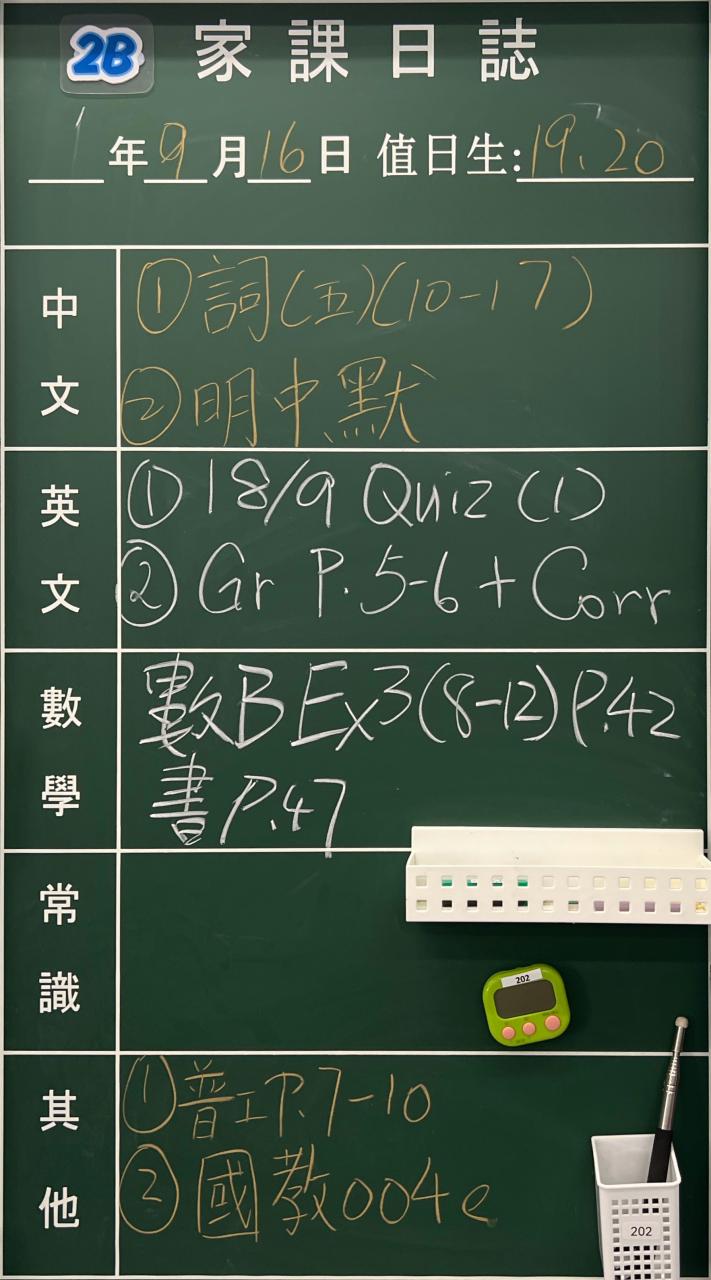 2B 家課日誌
年9月16日 值日生:19、20
中文
①詞(五)(10-17)
②明中默
英文
①18/9 Quiz (1)
②Gr P.5-6 + Corr
數學
數B Ex3(8-12) P.42
書P.47
常識
202
其他
①普工P.7-10
②國教004e
202